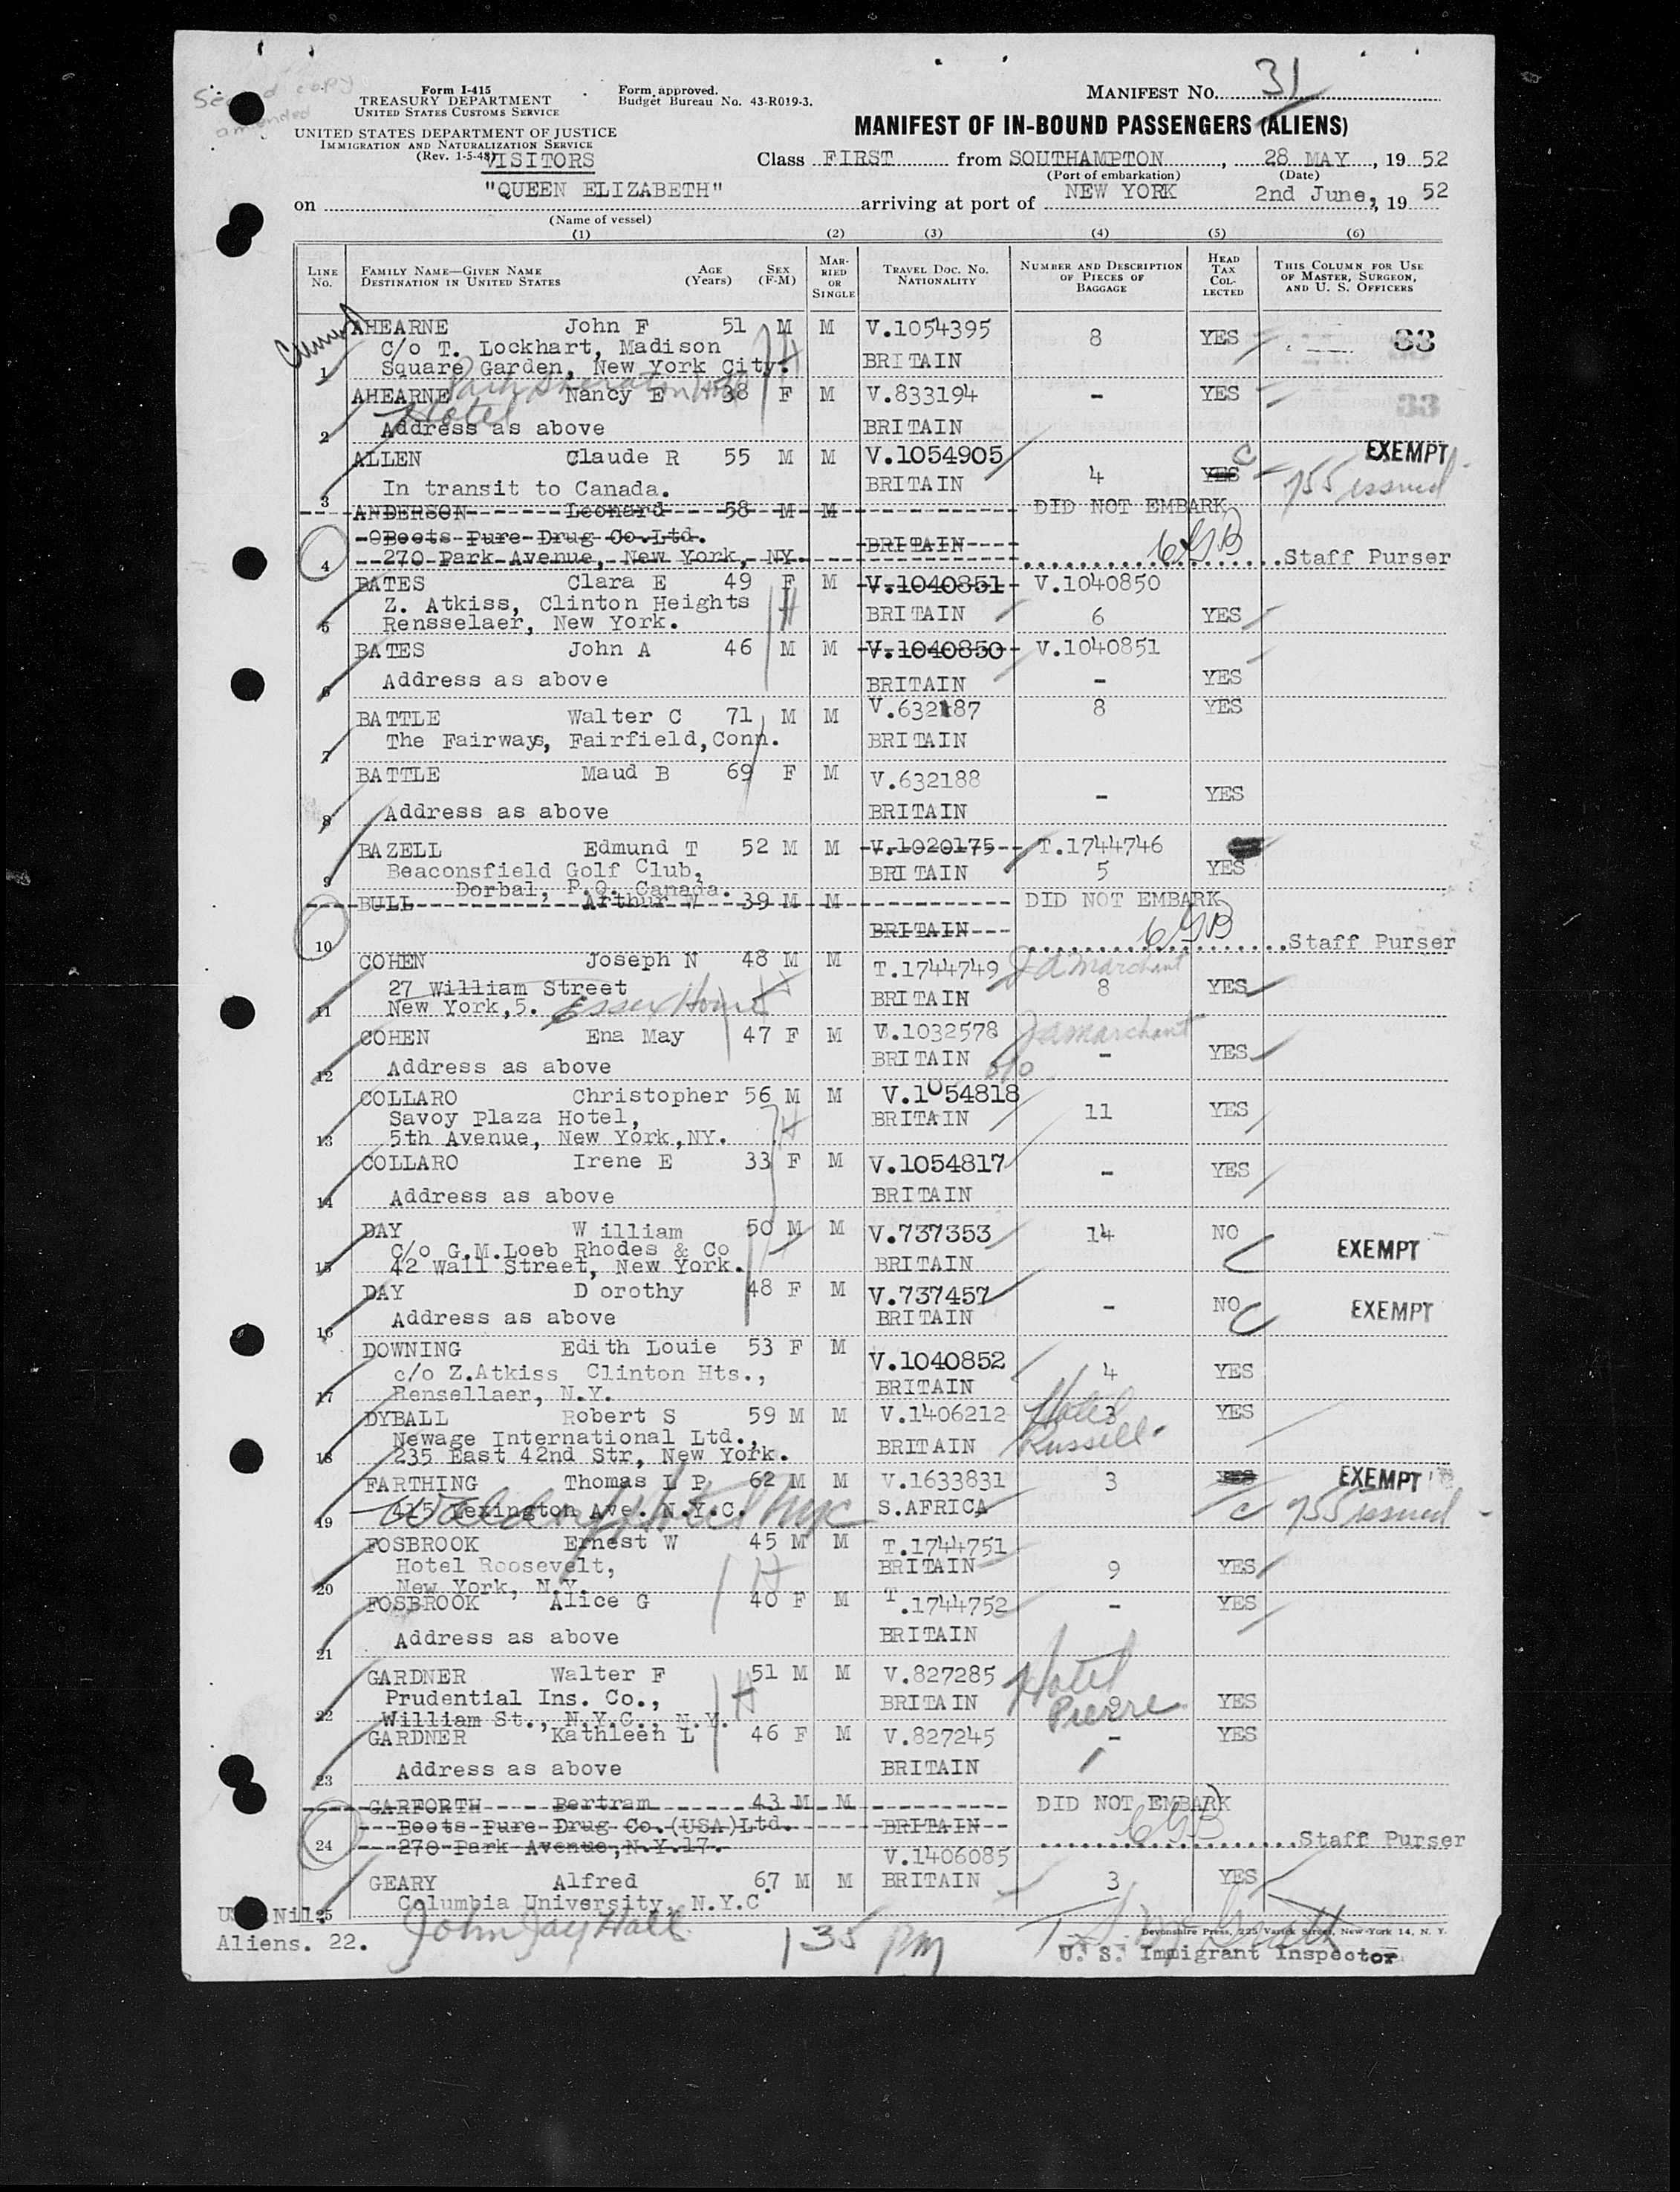 Second copy
amended
Form I-415
TREASURY DEPARTMENT
UNITED STATES CUSTOMS SERVICE
Form approved.
Budget Bureau No. 43-R019-3.
MANIFEST NO. 31
UNITED STATES DEPARTMENT OF JUSTICE
IMMIGRATION AND NATURALIZATION SERVICE
(Rev. 1-5-48)
VISITORS
MANIFEST OF IN-BOUND PASSENGERS (ALIENS)
Class FIRST from SOUTHAMPTON, 28 MAY, 19 52
(Port of embarkation) (Date)
on "QUEEN ELIZABETH" arriving at port of NEW YORK 2nd June, 19 52
(Name of vessel)
(1) (2) (3) (4) (5) (6)
LINE NO. FAMILY NAME—GIVEN NAME DESTINATION IN UNITED STATES AGE (Years) SEX (F-M) MARRIED OR SINGLE TRAVEL DOC. NO. NATIONALITY NUMBER AND DESCRIPTION OF PIECES OF BAGGAGE HEAD TAX COLLECTED THIS COLUMN FOR USE OF MASTER, SURGEON, AND U. S. OFFICERS
AHEARNE John F 51 M M V.1054395 8 YES 33
C/o T. Lockhart, Madison
1 Square Garden, New York City. BRITAIN
Park Sheraton Hotel
AHEARNE Nancy E 38 F M V.833194 - YES 33
Hotel
2 Address as above BRITAIN
ALLEN Claude R 55 M M V.1054905 4 YES C EXEMPT
3 In transit to Canada. BRITAIN 755 issued
ANDERSON Leonard 58 M M DID NOT EMBARK
Boots Pure Drug Co.Ltd. BRITAIN
4 270 Park Avenue, New York, NY. Staff Purser
BATES Clara E 49 F M V.1040851 V.1040850
Z. Atkiss, Clinton Heights BRITAIN 6 YES
5 Rensselaer, New York.
BATES John A 46 M M V.1040850 V.1040851
6 Address as above BRITAIN - YES
BATTLE Walter C 71 M M V.632187 8 YES
7 The Fairways, Fairfield,Conn. BRITAIN
BATTLE Maud B 69 F M V.632188
- YES
8 Address as above BRITAIN
BAZELL Edmund T 52 M M V.1020175 T.1744746
9 Beaconsfield Golf Club, BRITAIN 5 YES
Dorbal, P.Q. Canada.
BULL Arthur W 39 M M DID NOT EMBARK
10 BRITAIN Staff Purser
COHEN Joseph N 48 M M T.1744749
27 William Street BRITAIN 8 YES
11 New York,5. Essex House
COHEN Ena May 47 F M V.1032578
12 Address as above BRITAIN - YES
COLLARO Christopher 56 M M V.1054818
Savoy Plaza Hotel, BRITAIN 11 YES
13 5th Avenue, New York,NY.
COLLARO Irene E 33 F M V.1054817 - YES
14 Address as above BRITAIN
DAY W illiam 50 M M V.737353 14 NO
C/o G.M.Loeb Rhodes & Co C EXEMPT
15 42 Wall Street, New York. BRITAIN
DAY D orothy 48 F M V.737457 - NO C EXEMPT
16 Address as above BRITAIN
DOWNING Edith Louie 53 F M V.1040852
c/o Z.Atkiss Clinton Hts., BRITAIN 4 YES
17 Rensellaer, N.Y.
DYBALL Robert S 59 M M V.1406212 3 YES
Hotel
Newage International Ltd., Russell.
18 235 East 42nd Str, New York. BRITAIN
FARTHING Thomas L P 62 M M V.1633831 3 YES EXEMPT
19 415 Lexington Ave. N.Y.C. S.AFRICA C 755 issued
Hotel NYC
FOSBROOK Ernest W 45 M M T.1744751
Hotel Roosevelt, BRITAIN 9 YES
20 New York, N.Y.
FOSBROOK Alice G 40 F M T.1744752 - YES
21 Address as above BRITAIN
GARDNER Walter F 51 M M V.827285 Hotel
Prudential Ins. Co., BRITAIN Pierre YES
22 William St., N.Y.C., N.Y.
GARDNER Kathleen L 46 F M V.827245 - YES
23 Address as above BRITAIN
GARFORTH Bertram 43 M M DID NOT EMBARK
Boots Pure Drug Co.(USA)Ltd. BRITAIN
24 270 Park Avenue,N.Y.17. Staff Purser
V.1406085
GEARY Alfred 67 M M BRITAIN 3 YES
25 Columbia University, N.Y.C.
Nil.
Aliens. 22. John Jay Hall 135 PM
Devonshire Press, 225 Varick Street, New York 14, N. Y.
U. S. Immigrant Inspector